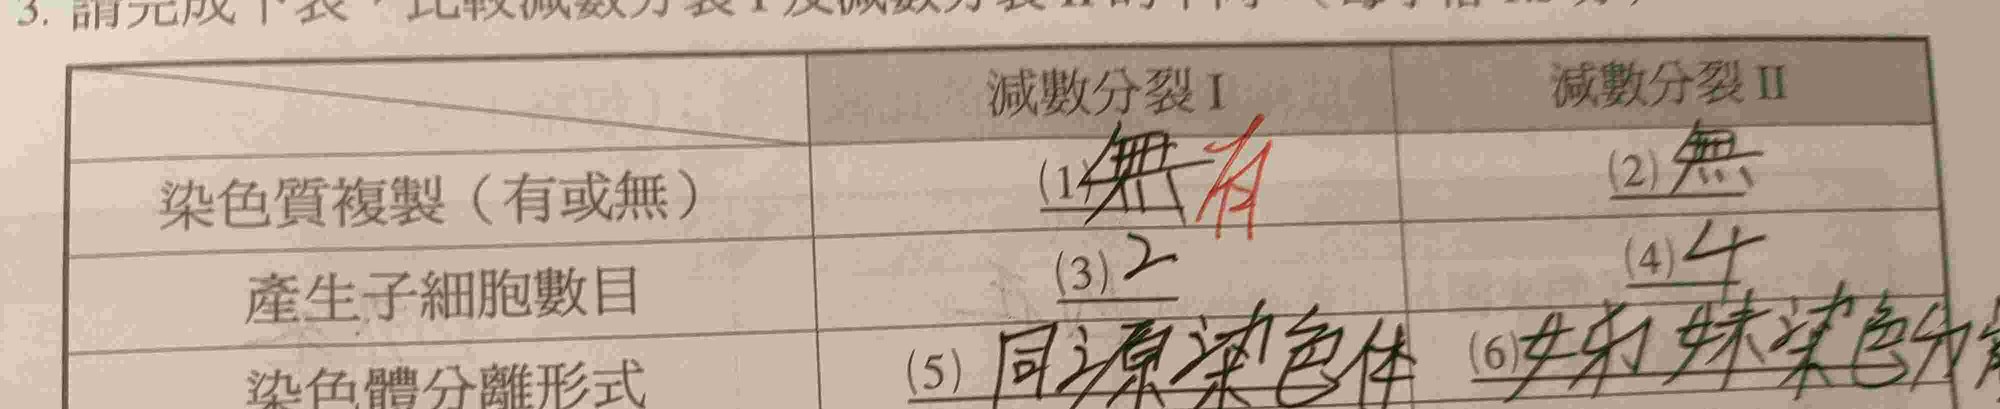 3. 請完成下表，比較減數分裂 I 及減數分裂 II 的不同
減數分裂 I 減數分裂 II
染色質複製（有或無） (1) 無 有 (2) 無
產生子細胞數目 (3) 2 (4) 4
染色體分離形式 (5) 同源染色体 (6) 姊妹染色分